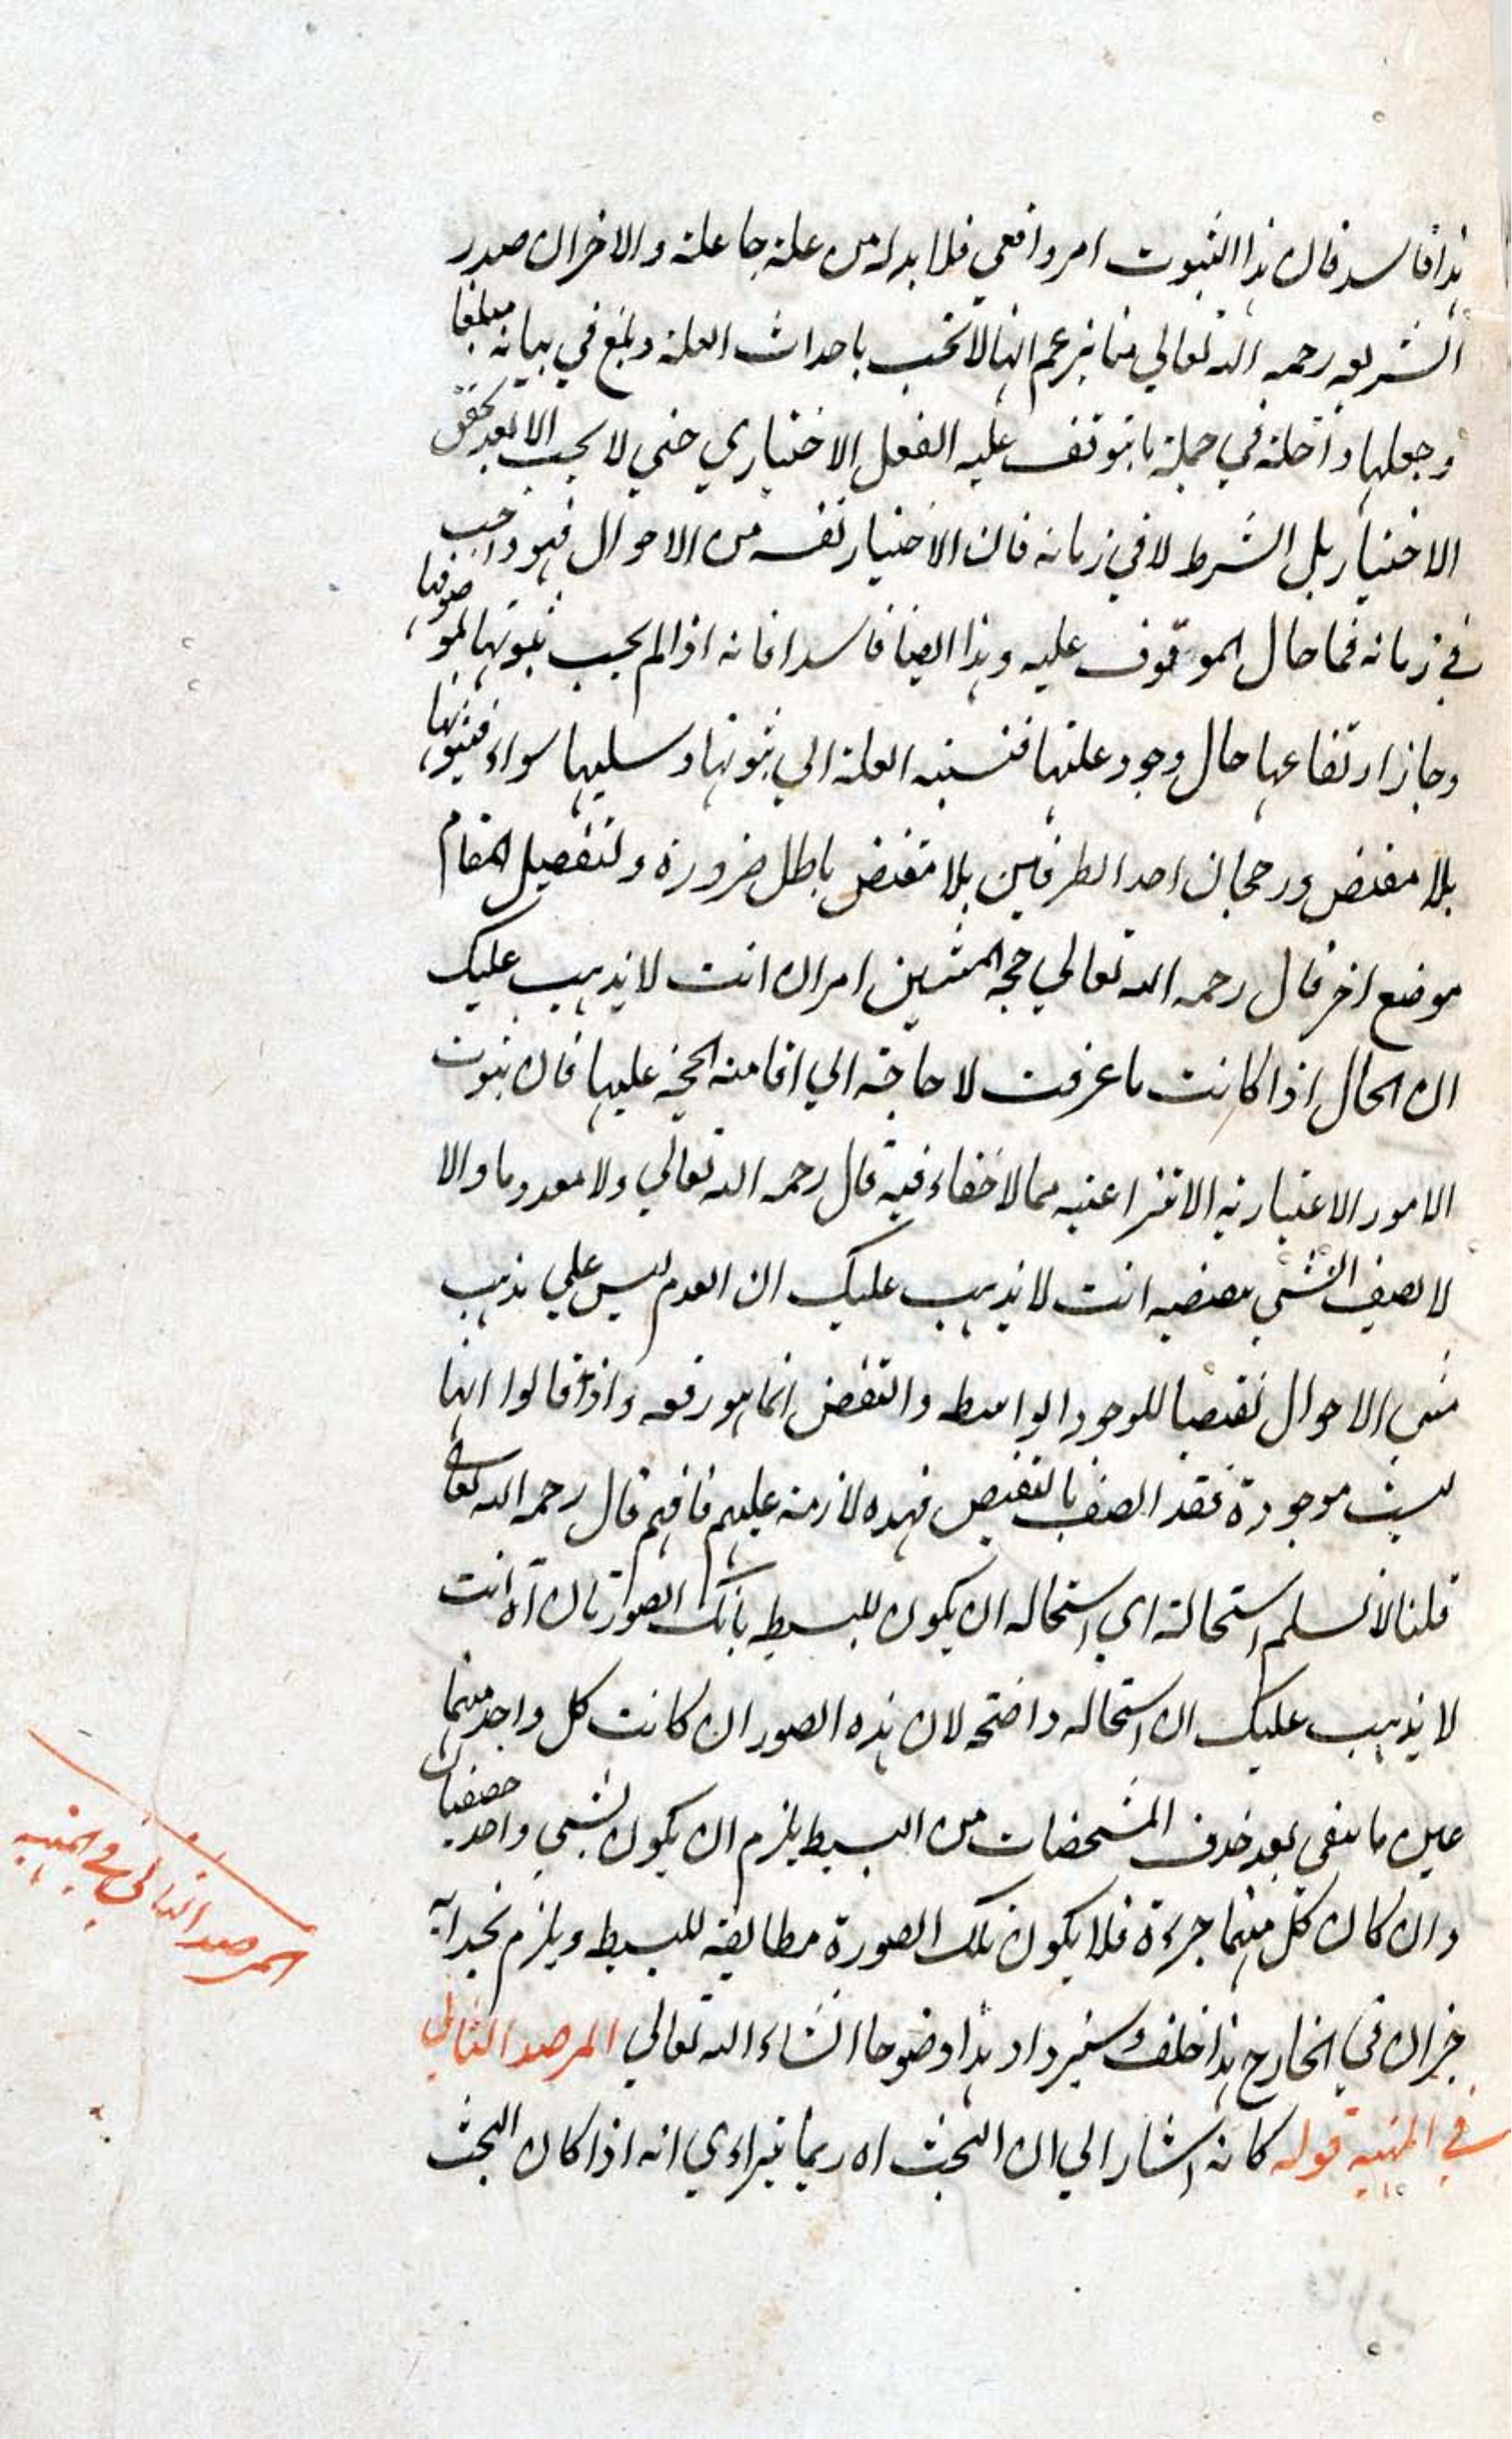 هذا فاسد فان هذا الثبوت امر واقعي فلا بد له من علة جاعلة والاخر ان صدر
الشريعه رحمه الله تعالي يزعم انها لا تجب باحداث العلة وبلغ في بيانه مبلغا
وجعلها داخلة في جملة ما يتوقف عليه الفعل الاختياري حتي لا يجب الا بعد تحقق
الاختيار بل الشرط لا في زمانه فان الاختيار نفسه من الاحوال فهو واجب
في زمانه فما حال الموقوف عليه وهذا ايضا فاسد فانه اذا لم يجب ثبوتها لموصوفها
وجاز ارتفاعها حال وجود علتها فنسبة العلة الي ثبوتها وسلبها سواء فثبوتها
بلا مقتض ورجحان احد الطرفين بلا مقتض باطل ضرورة ولتفصيل المقام
موضع اخر قال رحمه الله تعالي حجه المثبتين امران انت لا يذهب عليك
ان الحال اذا كانت ما عرفت لا حاجة الي اقامة الحجة عليها فان ثبوت
الامور الاعتباريه الانتزاعيه مما لا خفاء فيه قال رحمه الله تعالي ولا معدوما والا
لا تصف الشي بنقضيه انت لا يذهب عليك ان العدم ليس علي مذهب
مثبتي الاحوال نقيضا للوجود الواسطه والنقض انما هو رفعه واذا قالوا انها
ليست موجودة فقد اتصف بالنقيض فهذه لازمة عليهم فافهم قال رحمه الله تعالي
قلنا لا نسلم استحالته اي استحاله ان يكون للبسيط الصورتان آه انت
لا يذهب عليك ان استحاله واضحه لان هذه الصور ان كانت كل واحد منهما
عين ما بقي بعد حذف المشخصات من البسيط يلزم ان يكون لشي واحد حقيقتان
وان كان كل منهما جزءه فلا يكون تلك الصورة مطابقة للبسيط ويلزم
جزان في الخارج هذا خلف وسيزداد هذا وضوحا انشاء الله تعالي المرصد الثاني
في المهيه قوله كانه اشار الي ان البحث اه ربما يتراءي انه اذا كان البحث
المرصد الثاني في المهيه